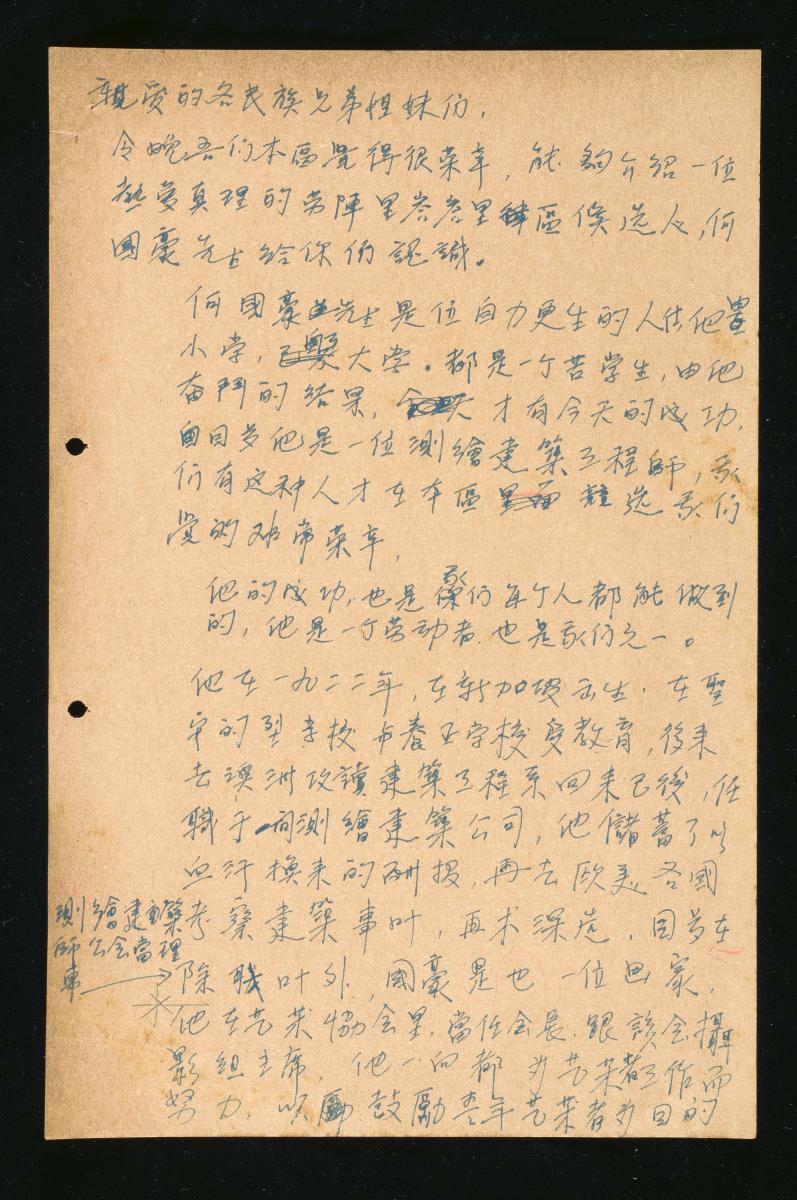 親愛的各民族兄弟姐妹们,
今晚吾们本區覺得很荣幸, 能夠介绍一位
熱爱真理的劳陣里峇峇里區候选人,何
國豪先生给你们認識。
何國豪先生是位自力更生的人,他畳
小学, 大学。都是一个苦学生,由他
奋鬥的结果, 才有今天的成功,
目目多他是一位測繪建築工程師,我
们有这种人才在本區 競选我们
党的非常荣幸,
他的成功,也是我们每个人都能做到
的,他是一个劳动者,也是我们之一。
他在一九二二年,在新加坡出生,在聖
安的列学校与養正学校受教育,後来
去澳洲攻讀建築工程系回来已後,任
職于一间測繪建築公司,他儲蓄了以
血汗換来的酬报,再去欧美各國
考察建築事叶,再求深造,因为在
測繪建築
師公会當理
事
除職叶外,國豪是也一位画家,
他在艺术協会里,當任会長,跟該会攝
影组主席,他一向都为艺术者工作而
努力,以鼓勵青年艺术者为目的